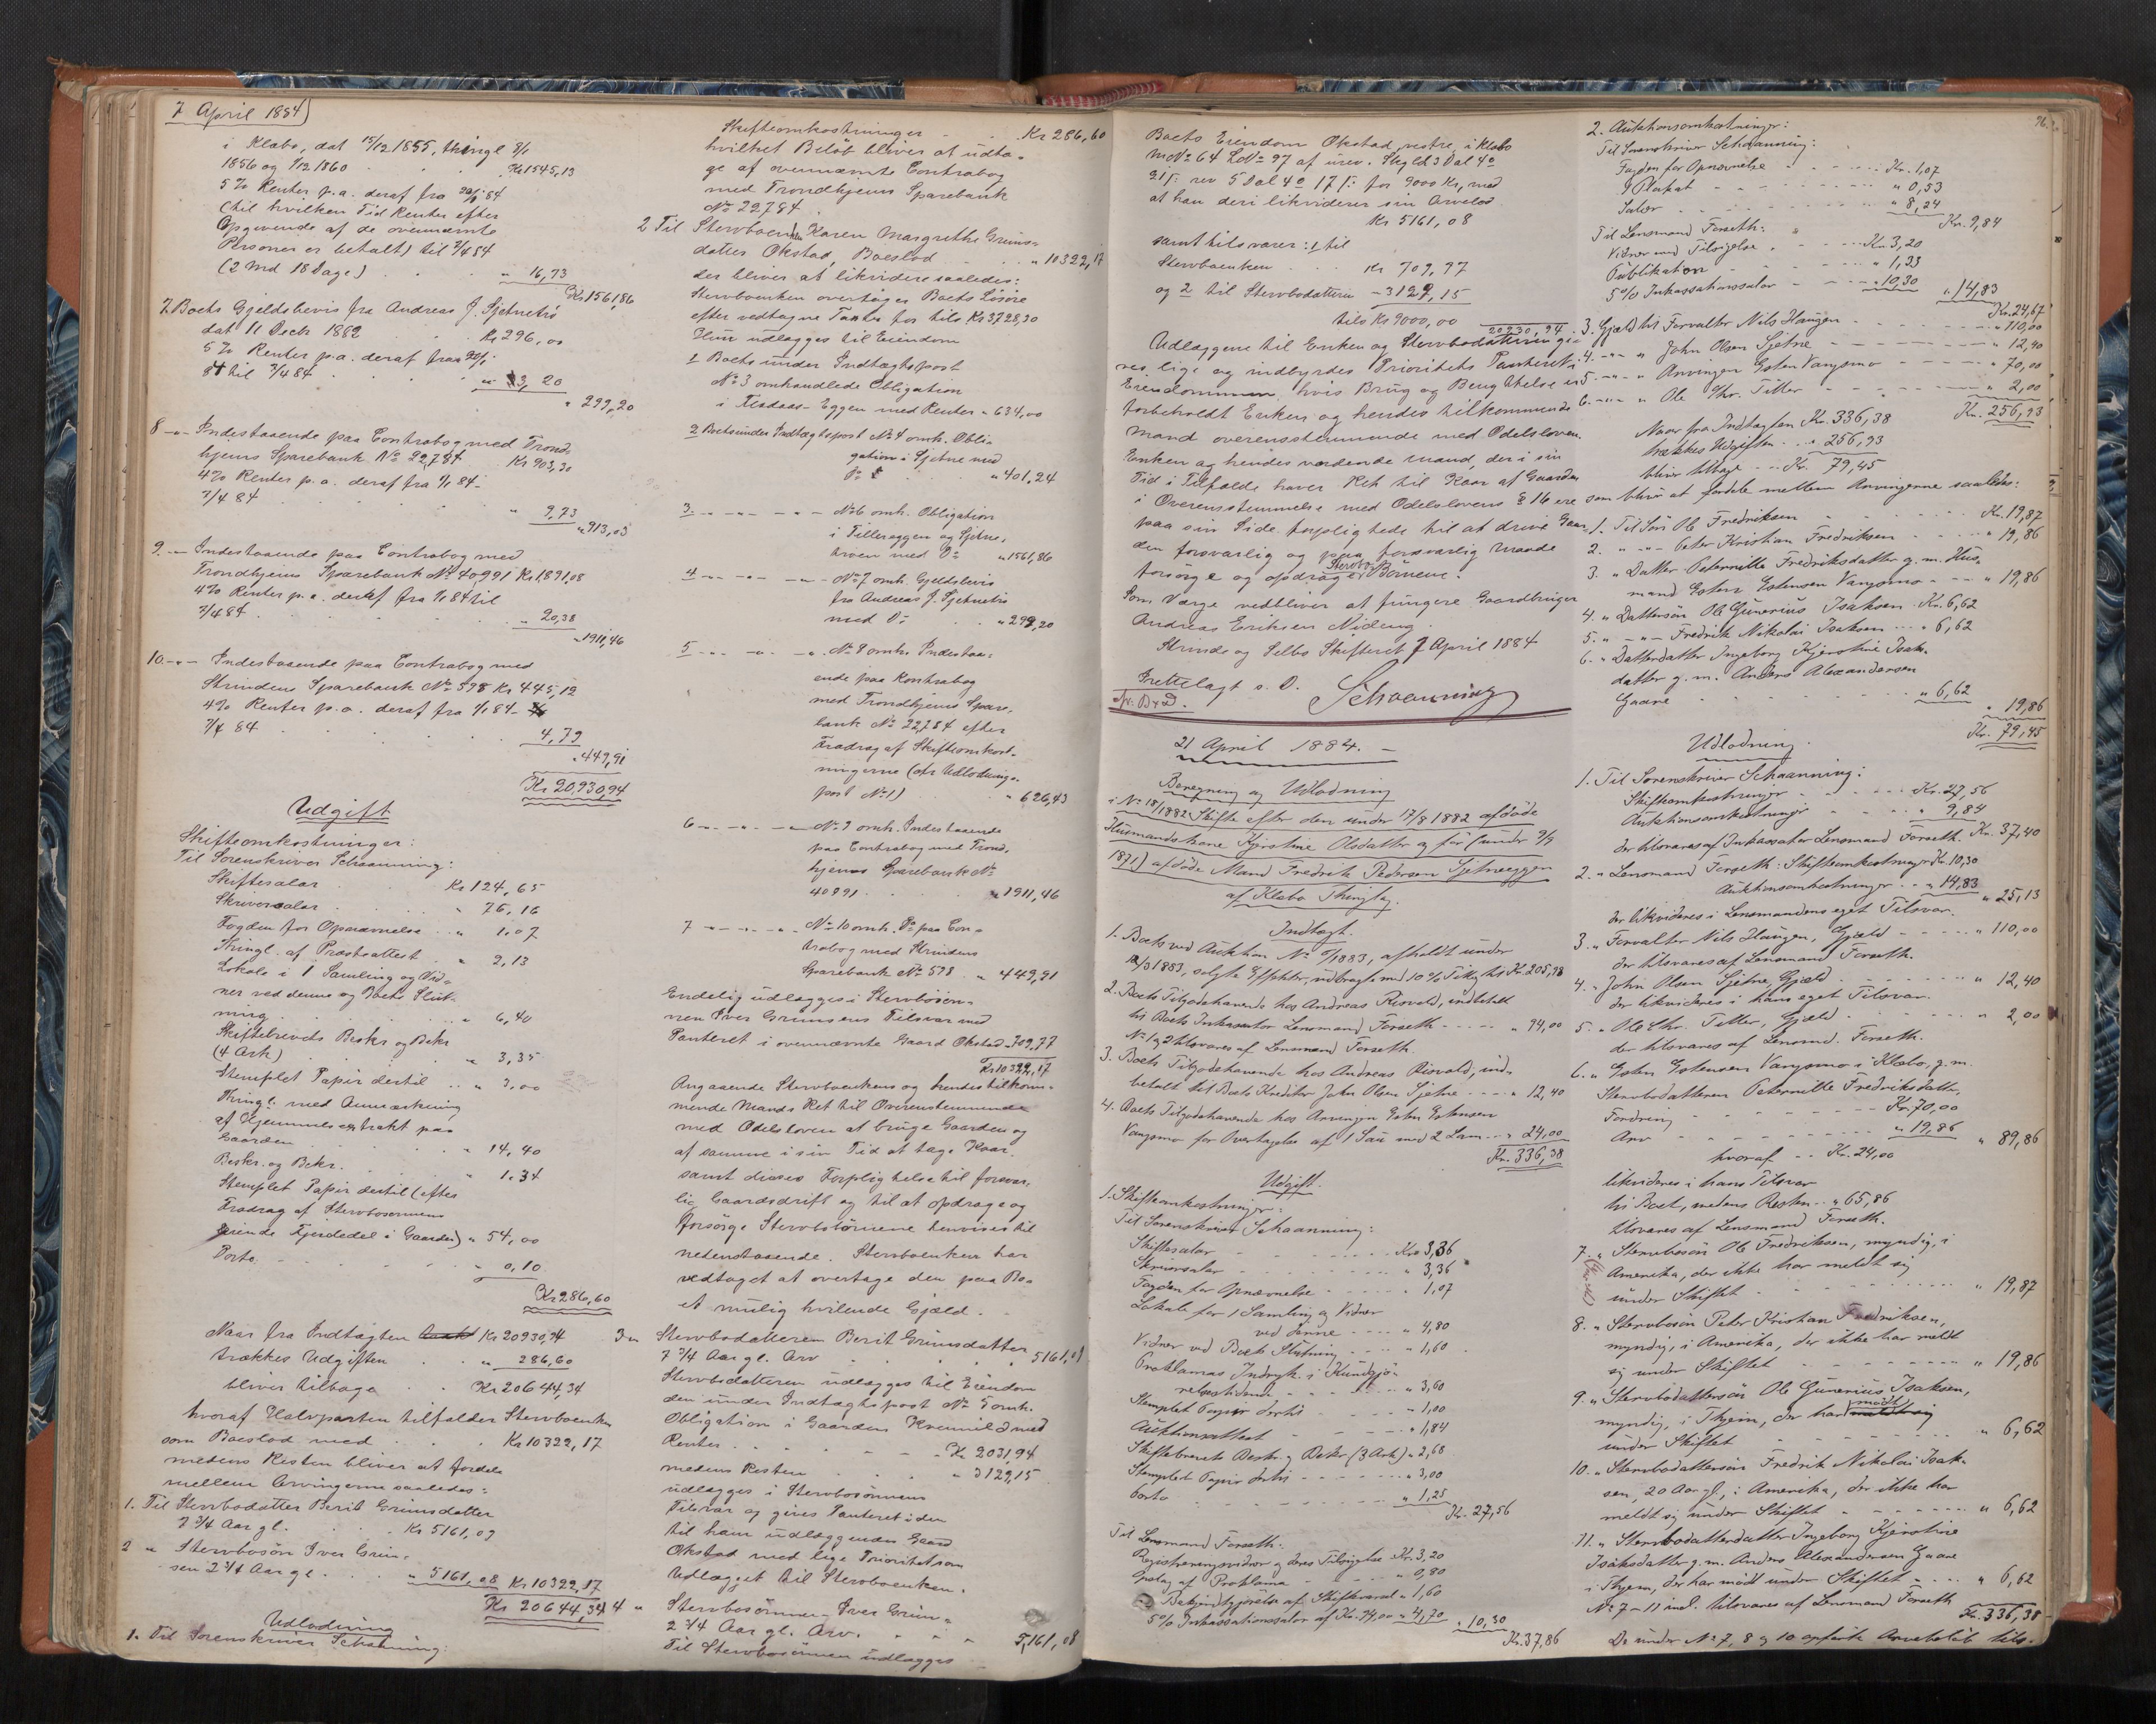 7 April 1884)
i Klæbo, dat 15/12 1855, thingl 8/1
1856 og 1/12 1860 Kr 1545,13
5% Renter p.a. deraf fra 20/1 84
(til hvilken Tid Renter efter
Opgivende af de ovennævnte
Personer er betalt) til 7/4 84
(2 Md 18 Dage) " 16,73
Kr 1561,86
7. Boets Gjeldsbevis fra Andreas J. Sjetnetrø
dat 11 Decb 1882 Kr 296,00
5% Renter p.a. deraf fra
84 til 7/4 84 " 3,20
" 299,20
8 -"- Indestaaende paa Contrabog med Trond-
hjems Sparebank No 22,784 Kr 903,30
4% Renter p.a. deraf fra 1/1 84 -
7/4 84 " 9,73
" 913,03
9. -"- Indestaaende paa Contrabog med
Trondhjems Sparebank No 40991 Kr 1891,08
4% Renter p.a. deraf fra 1/1 84 til
7/4 84 " 20,38
" 1911,46
10 -"- Indestaaende paa Contrabog med
Strindens Sparebank No 598 Kr 445,12
4% Renter p.a. deraf fra 1/1 84 -
7/4 84 4,79
" 449,91
Kr 20,930,94
Udgift
Skifteomkostninger:
Til Sorenskriver Schaanning:
Skiftesalær Kr 124,65
Skriversalær " 76,16
Fogden for Opnævnelse " 1,07
Thingl. af Præsteattest " 2,13
Lokale i 1 Samling og Vid-
ner ved denne og Boets Slut-
ning " 6,40
Skiftebrevets Beskr og Bekr
(4 Ark) " 3,35
Stemplet Papir dertil " 3,00
Thingl. med Anmærkning
af Hjemmelsextrakt paa
Gaarden " 14,40
Beskr. og Bekr. " 1,34
Stemplet Papir dertil (efter
Fradrag af Stervbosønnens
Fjerdedel i Gaarden) " 54,00
Porto " 0,10
Kr 286,60
Naar fra Indtægten Kr 20930,94
trækkes Udgiften " 286,60
bliver tilbage Kr 20644,34
hvoraf Halvparten tilfalder Stervboenken
som Boeslod med Kr 10322,17
medens Resten bliver at fordele
mellem Arvingerne saaledes:
1. Til Stervbodatter Berit Grimsdatter
7 3/4 Aar gl. Kr 5161,09
2 " Stervbosøn Iver Grim-
sen 2 3/4 Aar gl. " 5161,08 Kr 10322,17
Kr 20644,34
Udlodning
1. Til Sorenskriver Schaanning:
Skifteomkostninger Kr 286,60
hvilket Beløb bliver at udta-
ge af ovennævnte Contrabog
med Trondhjems Sparebank
No 22,784.
2 Til Stervboenken Karen Margrethe Grims-
datter Økstad, Boeslod " 10322,17
der bliver at likvidere saaledes:
Stervboenken overtager Boets Løsøre
efter vedtagne Taxter for tils Kr 3728,30
Hun udlægges til Eiendom
1 Boets under Indtægtspost
No 3 omhandlede Obligation
i Flaaas-Eggen med Renter " 634,00
2 Boets under Indtægtspost No 4 omh. Obli-
gation i Sjetne med
Do " 401,24
3 -"- -"- No 6 omh. Obligation
i Tillereggen og Sjetne-
trøen med Do " 1561,86
4 -"- -"- No 7 omh. Gjeldsbevis
fra Andreas J. Sjetnetrø
med Do " 299,20
5 -"- -"- No 8 omh. Indestaa-
ende paa Kontrabog
med Trondhjems Spare-
bank No 22,784 efter
Fradrag af Skifteomkost-
ningerne (cfr Udlodnings-
post No 1) " 626,43
6 -"- -"- No 9 omh. Indestaaende
paa Contrabog med Trond-
hjems Sparebank No
40991 " 1911,46
7 -"- -"- No 10 omh. Do paa Con-
trabog med Strindens
Sparebank No 598 " 449,91
Endelig udlægges i Stervbosøn-
nen Iver Grimsens Tilsvar med
Panteret i ovennævnte Gaard Økstad " 709,77
Kr 10322,17
Angaaende Stervboenkens og hendes tilkom-
mende Mands Ret til Overensstemmende
med Odelsloven at bruge Gaarden og
af samme i sin Tid at tage Kaar,
samt disses Forpligtelse til forsvar-
lig Gaardsdrift og til at opdrage og
forsørge Stervbobørnene henvises til
nedenstaaende. Stervboenken har
vedtaget at overtage den paa Bo-
et mulig hvilende Gjæld.
3 " Stervbodatteren Berit Grimsdatter
7 3/4 Aar gl. Arv 5161,09
Stervbodatteren udlægges til Eiendom
den under Indtægtspost No 5 omh.
Obligation i Gaarden med
Renter Kr 2031,94
medens Resten " 3129,15
udlægges i Stervbosønnens
Tilsvar og gives Panteret i den
til ham udlæggendes Gaard
Økstad med lige Prioritet som
Udlægget til Stervboenken.
4 " Stervbosønnen Iver Grimsen
2 3/4 Aar gl. Arv. 5161,08
Til Stervbosønnen udlægges
Boets Eiendom Økstad vestre, i Klæbo
MNo 64 LNo 97 af urev. Skyld 3 Dal 4 o
21 s. rev 5 Dal 4 o 17 s. for 9000 Kr, mod
at han deri likviderer sin Arvelod
Kr 5161,08
samt tilsvarer: 1 til
Stervboenken Kr 709,77
og 2 til Stervbodatteren - 3129,15
tils Kr 9000,00
20930,94
Udlæggene til Enken og Stervbodatteren gi-
ves lige og indbyrdes Prioritets Panteret i
Eiendommen, hvis Brug og Benyttelse er
forbeholdt Enken og hendes tilkommende
Mand overensstemmende med Odelsloven.
Enken og hendes vordende Mand, der i sin
Tid i Tilfælde haver Ret til Kaar af Gaarden
i Overensstemmelse med Odelslovens § 16 ere
paa sin Side forpligtede til at drive Gaar-
den forsvarlig og paa forsvarlig Maade
forsørge og opdrage Stervbo Børnene.
Som Værge vedbliver at fungere Gaardbruger
Andreas Eriksen Nideng.
Strinda og Selbo Skifteret 7 April 1884
Schaanning
Fremlagt s. D.
21 April 1884. -
Beregning og Udlodning
i No 18/1882 Skifte efter den under 17/8 1882 afdøde
Husmandskone Kjerstine Olsdatter og før (under 9/7
1871) afdøde Mand Fredrik Pedersen Sjetneeggen
af Klæbo Thinglag.
Indtægt.
1. Boets ved Auktion No 6/1883, afholdt under
1883, solgte Effekter, udbragte med 10% Tillæg tils Kr. 205,98
2. Boets Tilgodehavende hos Andreas Risvold, indbetalt
til Boets Inkassator Lensmand Forseth " 94,00
No 1 og 2 tilsvares af Lensmand Forseth.
3. Boets Tilgodehavende hos Andreas Risvold, ind-
betalt til Boets Kreditor John Olsen Sjetne " 12,40
4. Boets Tilgodehavende hos Arvingen Esten Estensen
Vangsmo for Overtagelse af 1 Sau med 2 Lam " 24,00
Kr. 336,38
Udgift.
1. Skifteomkostninger:
Til Sorenskriver Schaanning:
Skiftesalær Kr. 3,36
Skriversalær " 3,36
Fogden for Opnævnelse " 1,07
Lokale for 1 Samling og Vidner
ved denne " 4,80
Vidner ved Boets Slutning " 1,60
Proklamas Indryk. i Kundgjø-
relsestidende " 3,60
Stemplet Papir dertil " 1,00
Auktionsattest " 1,84
Skiftebrevets Beskr. og Bekr (3 Ark) " 2,68
Stemplet Papir dertil " 3,00
Porto " 1,25
Kr. 27,56
Til Lensmand Forseth:
Registreringsvidner og deres Tilsigelse Kr. 3,20
Opslag af Proklama " 0,80
Bekjendtgjørelse af Skiftevarsel " 1,60
5% Inkassationssalær af Kr. 94,00 " 4,70 " 10,30
Kr. 37,86
2. Auktionsomkostninger:
Til Sorenskriver Schaanning:
Fogden for Opnævnelse Kr. 1,07
1 Plakat " 0,53
Salær " 8,24
Kr. 9,84
Til Lensmand Forseth:
Vidner med Tilsigelse Kr. 3,20
Publikation " 1,33
5% Inkassationssalær " 10,30
" 14,83
Kr. 24,67
3. Gjæld til Forvalter Nils Haugen " 110,00
4. -"- " John Olsen Sjetne " 12,40
5. -"- " Arvingen Esten Vangsmo " 70,00
6. -"- " Ole Chr. Tiller " 2,00
Kr. 256,93
Naar fra Indtægten Kr. 336,38
trækkes Udgiften " 256,93
bliver tilbage Kr. 79,45
som bliver at fordele mellem Arvingerne saaledes:
1. Til Søn Ole Fredriksen Kr. 19,87
2. " -"- Peter Kristian Fredriksen " 19,86
3. " Datter Peternille Fredriksdatter g. m. Hus-
mand Esten Estensen Vangsmo " 19,86
4. " Dattersøn Ole Gunerius Isaksen Kr. 6,62
5. " -"- Fredrik Nikolai Isaksen " 6,62
6. " Datterdatter Ingeborg Kjerstine Isak-
datter g. m. Anders Alexandersen
Gaare " 6,62
" 19,86
Kr. 79,45
Udlodning.
1. Til Sorenskriver Schaanning:
Skifteomkostninger Kr. 27,56
Auktionsomkostninger " 9,84
Kr. 37,40
der tilsvares af Inkassator Lensmand Forseth.
2. " Lensmand Forseth: Skifteomkostninger Kr. 10,30
Auktionsomkostninger " 14,83
" 25,13
der likvideres i Lensmandens eget Tilsvar.
3. " Forvalter Nils Haugen, Gjæld " 110,00
der tilsvares af Lensmand Forseth.
4. " John Olsen Sjetne, Gjæld " 12,40
der likvideres i hans eget Tilsvar.
5. " Ole Chr. Tiller, Gjæld " 2,00
der tilsvares af Lensmd. Forseth.
6. " Esten Estensen Vangsmo i Klæbo, g. m.
Stervbodatteren Peternille Fredriksdatter,
Fordring Kr. 70,00
Arv " 19,86
" 89,86
hvoraf Kr. 24,00
likvideres i hans Tilsvar
til Boet, medens Resten " 65,86
tilsvares af Lensmand Forseth.
7. " Stervbosøn Ole Fredriksen, myndig, i
Amerika, der ikke har meldt sig
under Skiftet " 19,87
8. " Stervbosøn Peter Kristian Fredriksen,
myndig, i Amerika, der ikke har meldt
sig under Skiftet " 19,86
9. " Stervbodattersøn Ole Gunerius Isaksen,
myndig, i Thjem, der har mødt
under Skiftet " 6,62
10. " Stervbodattersøn Fredrik Nikolai Isak-
sen, 20 Aar gl., i Amerika, der ikke har
meldt sig under Skiftet " 6,62
11. " Stervbodatterdatter Ingeborg Kjerstine
Isaksdatter g. m. Anders Alexandersen Gaare
i Thjem, der har mødt under Skiftet " 6,62
No 7-11 incl. tilsvares af Lensmand Forseth
Kr. 336,38
De under No 7, 8 og 10 opførte Arvebeløb tils.